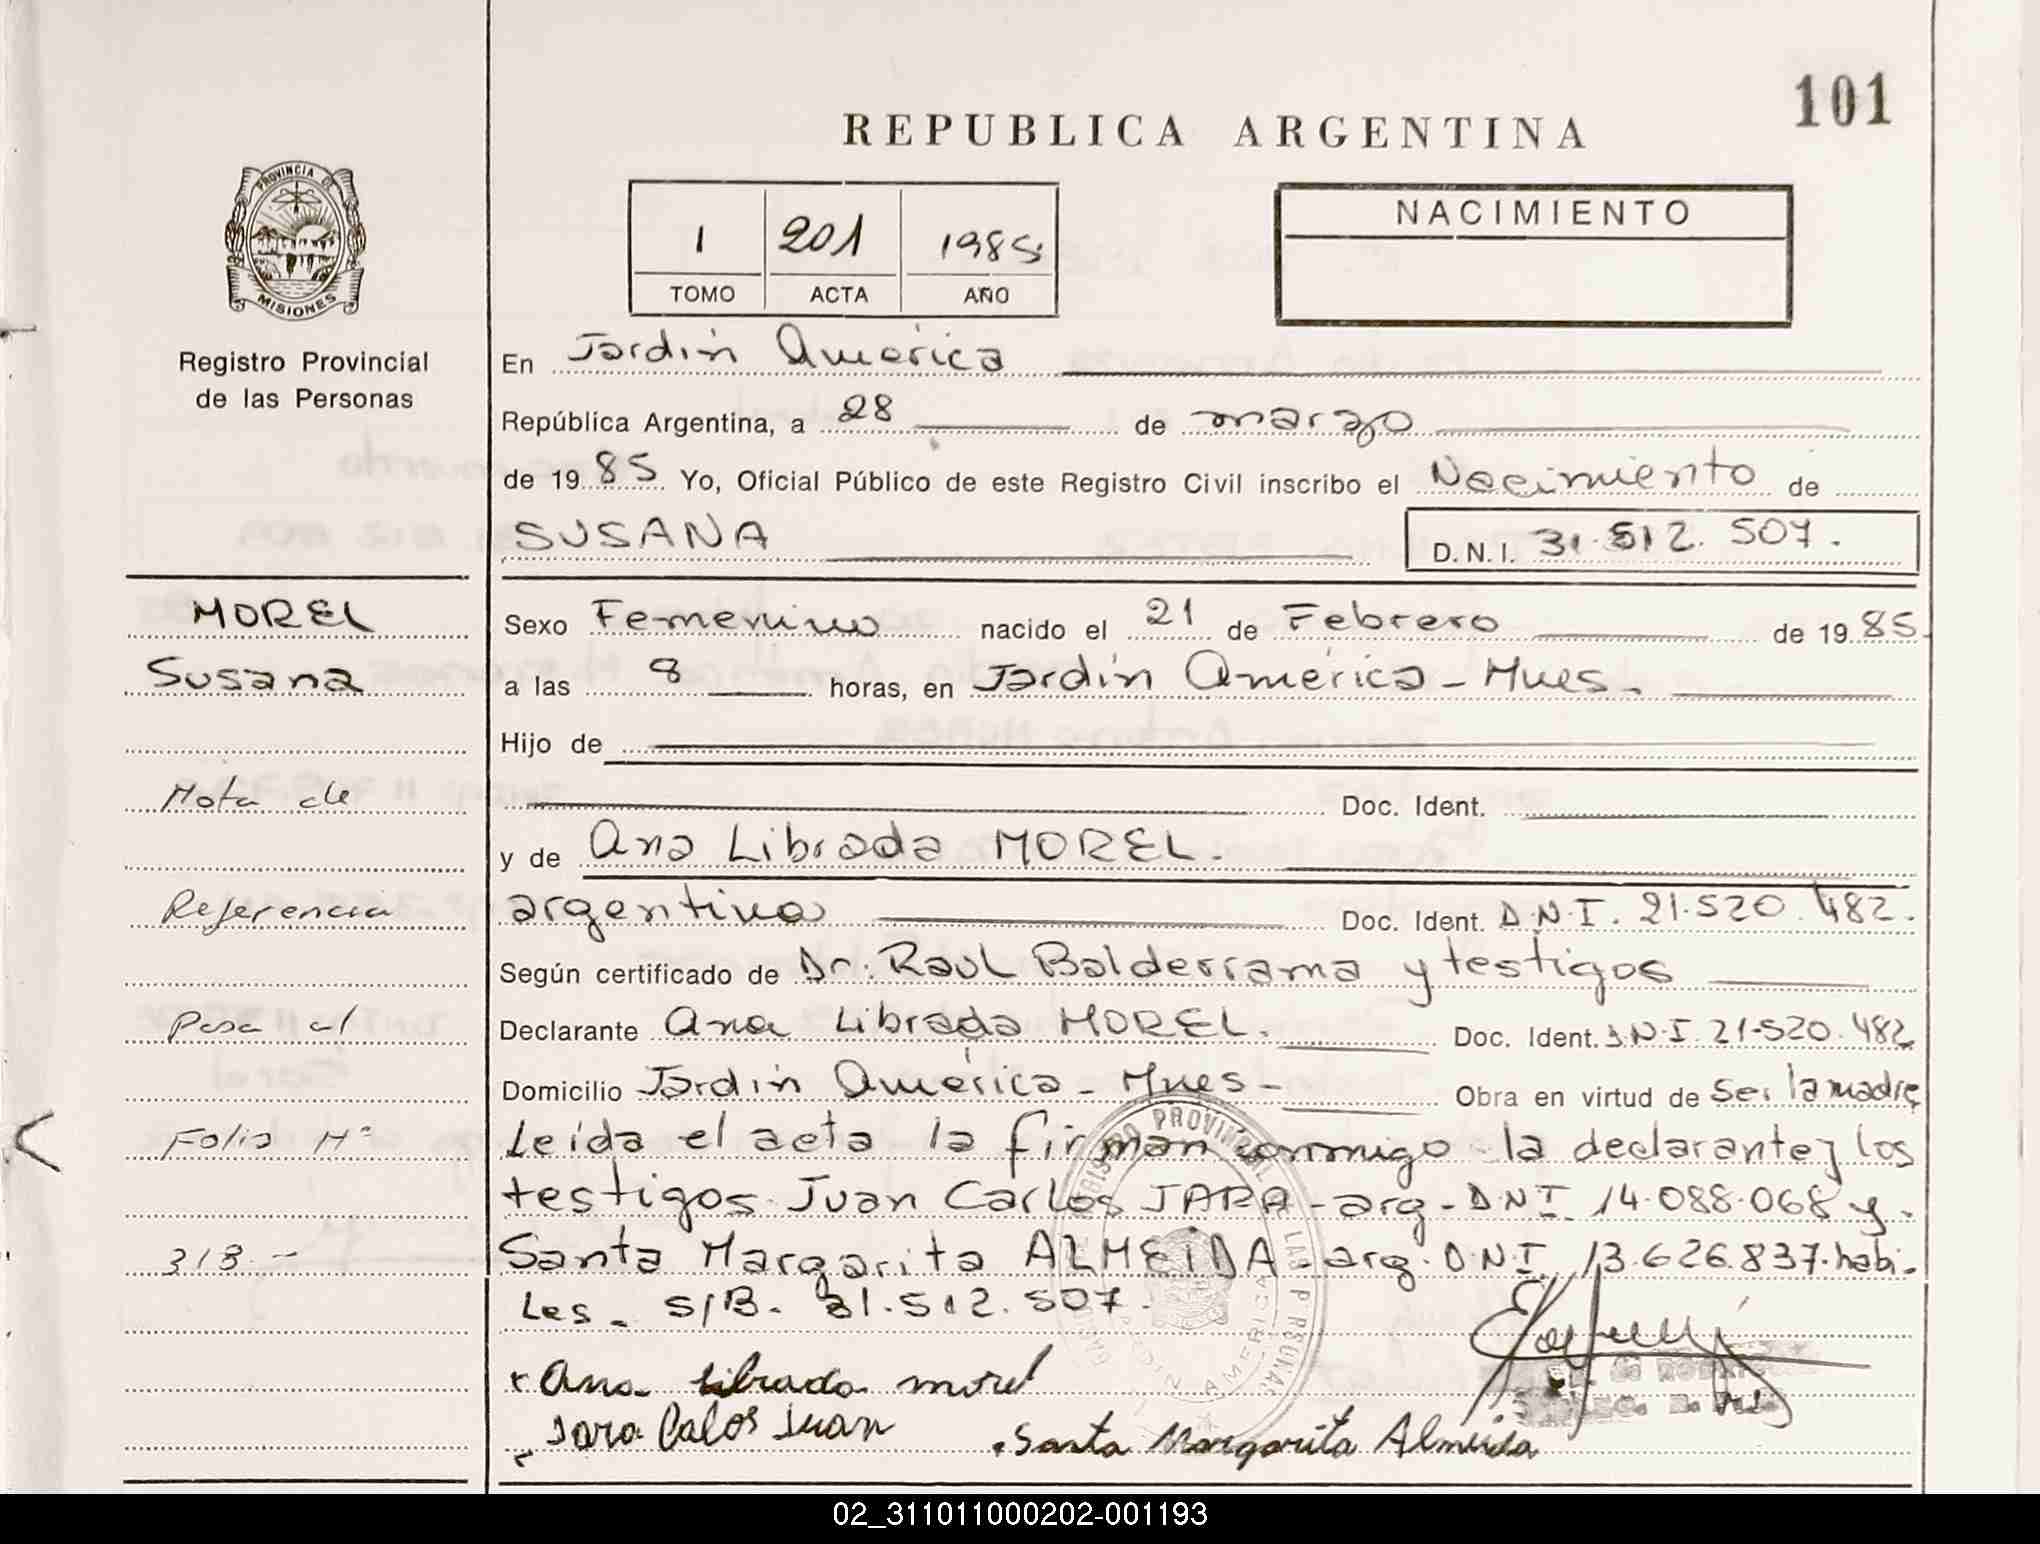 101
REPUBLICA ARGENTINA
PROVINCIA DE
MISIONES
1 201 1985
TOMO ACTA AÑO
NACIMIENTO
Registro Provincial
de las Personas
En Jardín América
República Argentina, a 28 de marzo
de 1985 Yo, Oficial Público de este Registro Civil inscribo el Nacimiento de
SUSANA D.N.I. 31.512.507.
MOREL
Susana
Nota de
Referencia
Pasa al
Folio Nº
318.-
Sexo Femenino nacido el 21 de Febrero de 1985.
a las 8 horas, en Jardín América - Mnes.
Hijo de
Doc. Ident.
y de Ana Librada MOREL.
argentina Doc. Ident. D.N.I. 21.520.482.
Según certificado de Dr. Raul Balderrama y testigos
Declarante Ana Librada MOREL. Doc. Ident. D.N.I. 21.520.482
Domicilio Jardín América - Mnes - Obra en virtud de Ser la madre
Leída el acta la firman conmigo la declarante y los
testigos Juan Carlos JARA - arg - D.N.I. 14.088.068 y.
Santa Margarita ALMEIDA - arg. D.N.I. 13.626.837. habi-
les. S/B. 31.512.507.
Ana Librada morel
Jara Calos Juan Santa Margarita Almeida
02_311011000202-001193